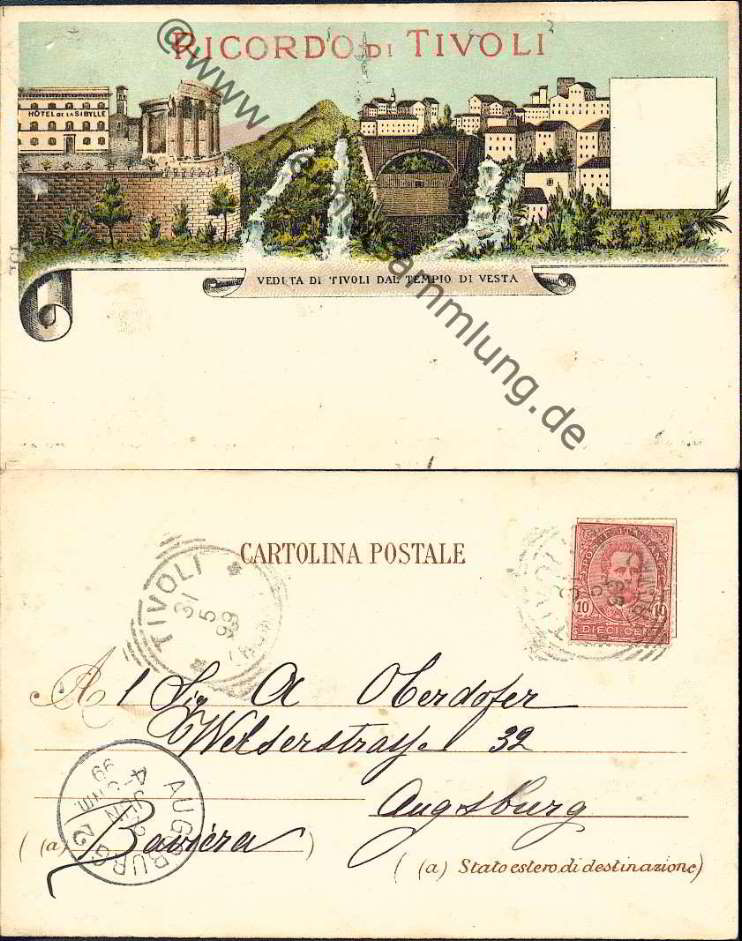 RICORDO DI TIVOLI
HÔTEL DE LA SIBYLLE
VEDUTA DI TIVOLI DAL TEMPIO DI VESTA
CARTOLINA POSTALE
TIVOLI
31
5
99
10 10
DIECI CENT
A l Sig A Oberdofer
Welserstrasse 32
Augsburg
(a) Baviera
(a) Stato estero di destinazione)
AUGSBURG 2
4 JUN
99
sammlung.de